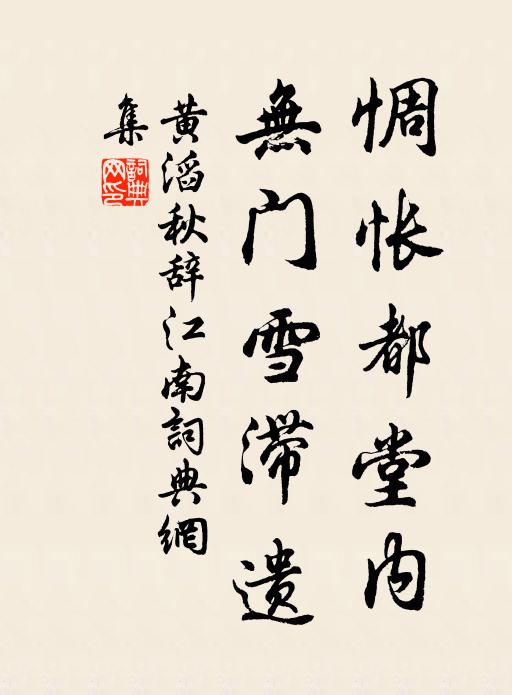 惆怅都堂内
無门雪滞遗
黄滔秋辞江南詞典網
集
詞典
网印